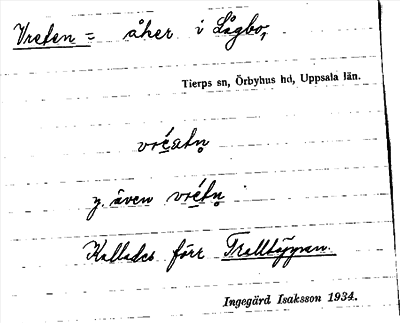 Vreten = åker i Lågbo,
Tierps sn, Örbyhus hd, Uppsala län.
vréatn̥
y. även vrétn̥
Kallades förr Trolltäppan.
Ingegärd Isaksson 1934.